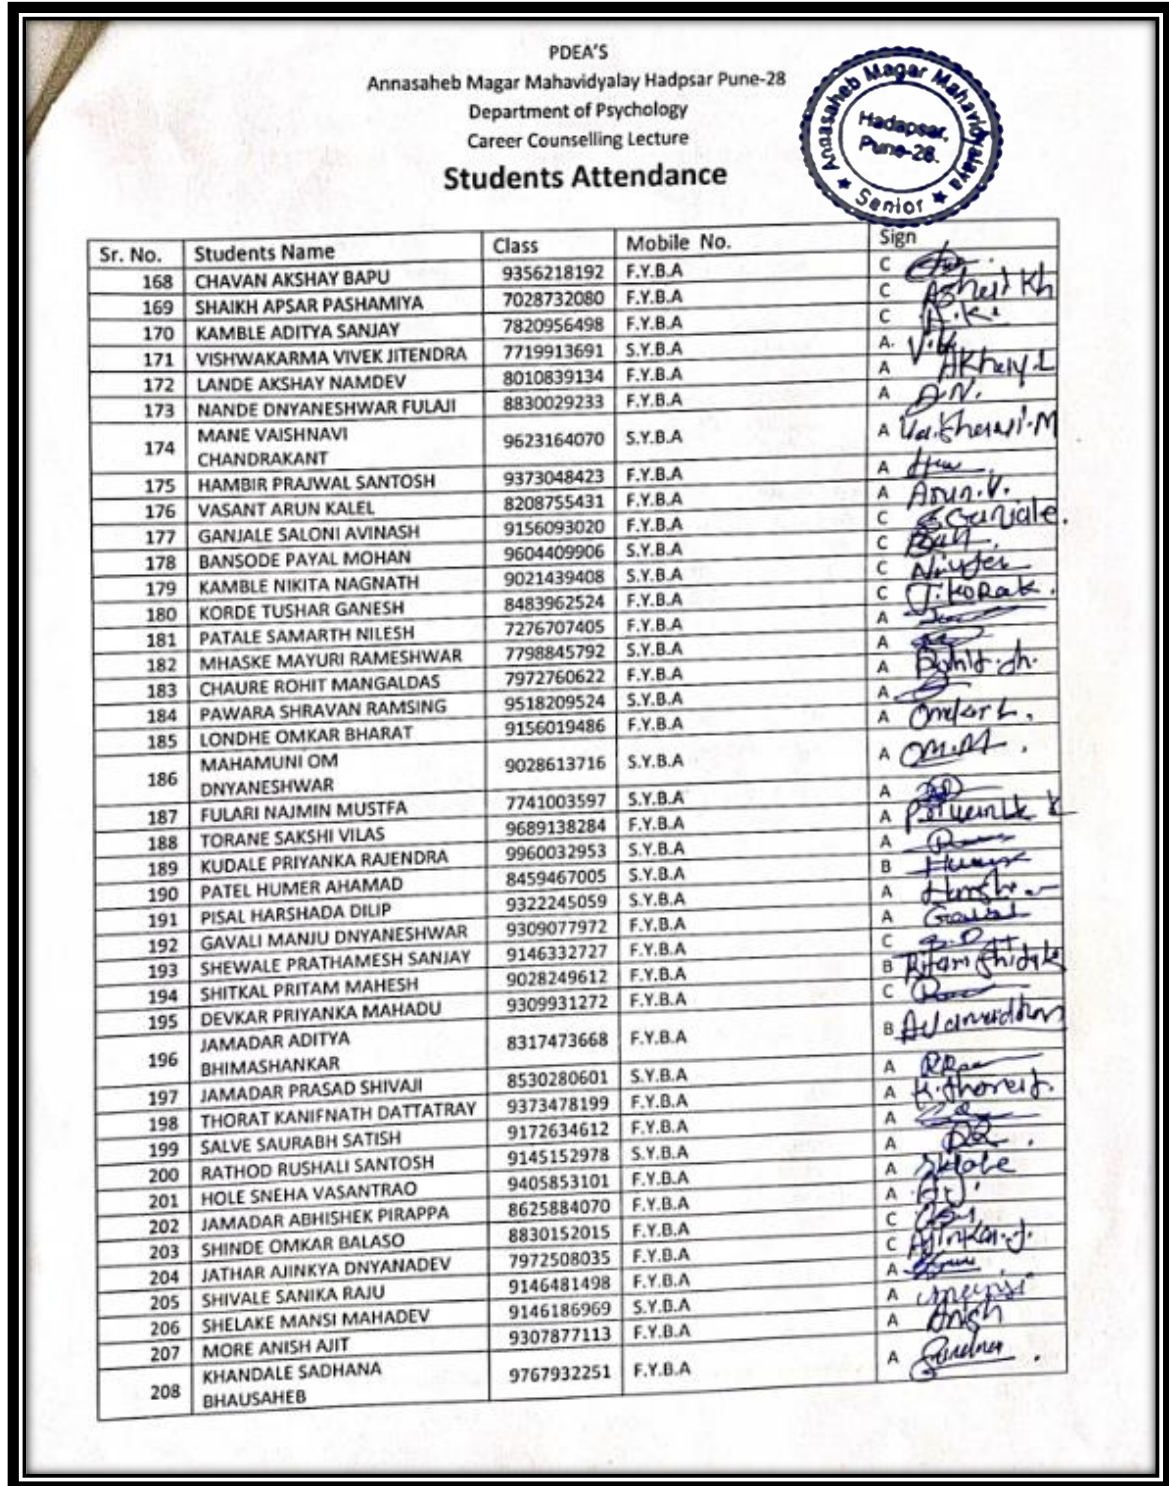 PDEA'S
Annasaheb Magar Mahavidyalay Hadpsar Pune-28
Department of Psychology
Career Counselling Lecture
Students Attendance
Annasaheb Magar Mahavidyalaya
Hadapsar,
Pune-28.
★ Senior ★
Sr. No. Students Name Class Mobile No. Sign
168 CHAVAN AKSHAY BAPU 9356218192 F.Y.B.A C
169 SHAIKH APSAR PASHAMIYA 7028732080 F.Y.B.A C
170 KAMBLE ADITYA SANJAY 7820956498 F.Y.B.A C
171 VISHWAKARMA VIVEK JITENDRA 7719913691 S.Y.B.A A.
172 LANDE AKSHAY NAMDEV 8010839134 F.Y.B.A A
173 NANDE DNYANESHWAR FULAJI 8830029233 F.Y.B.A A D.N.
174 MANE VAISHNAVI CHANDRAKANT 9623164070 S.Y.B.A A
175 HAMBIR PRAJWAL SANTOSH 9373048423 F.Y.B.A A
176 VASANT ARUN KALEL 8208755431 F.Y.B.A A Arun.V.
177 GANJALE SALONI AVINASH 9156093020 F.Y.B.A C S Ganjale.
178 BANSODE PAYAL MOHAN 9604409906 S.Y.B.A C
179 KAMBLE NIKITA NAGNATH 9021439408 S.Y.B.A C
180 KORDE TUSHAR GANESH 8483962524 F.Y.B.A C
181 PATALE SAMARTH NILESH 7276707405 F.Y.B.A A
182 MHASKE MAYURI RAMESHWAR 7798845792 S.Y.B.A A
183 CHAURE ROHIT MANGALDAS 7972760622 F.Y.B.A A Rohit.ch.
184 PAWARA SHRAVAN RAMSING 9518209524 S.Y.B.A A
185 LONDHE OMKAR BHARAT 9156019486 F.Y.B.A A Omkar L.
186 MAHAMUNI OM DNYANESHWAR 9028613716 S.Y.B.A A OM.M.
187 FULARI NAJMIN MUSTFA 7741003597 S.Y.B.A A
188 TORANE SAKSHI VILAS 9689138284 F.Y.B.A A
189 KUDALE PRIYANKA RAJENDRA 9960032953 S.Y.B.A A
190 PATEL HUMER AHAMAD 8459467005 S.Y.B.A B
191 PISAL HARSHADA DILIP 9322245059 S.Y.B.A A
192 GAVALI MANJU DNYANESHWAR 9309077972 F.Y.B.A A
193 SHEWALE PRATHAMESH SANJAY 9146332727 F.Y.B.A C
194 SHITKAL PRITAM MAHESH 9028249612 F.Y.B.A B
195 DEVKAR PRIYANKA MAHADU 9309931272 F.Y.B.A C
196 JAMADAR ADITYA BHIMASHANKAR 8317473668 F.Y.B.A B
197 JAMADAR PRASAD SHIVAJI 8530280601 S.Y.B.A A
198 THORAT KANIFNATH DATTATRAY 9373478199 F.Y.B.A A
199 SALVE SAURABH SATISH 9172634612 F.Y.B.A A
200 RATHOD RUSHALI SANTOSH 9145152978 S.Y.B.A A
201 HOLE SNEHA VASANTRAO 9405853101 F.Y.B.A A
202 JAMADAR ABHISHEK PIRAPPA 8625884070 F.Y.B.A A
203 SHINDE OMKAR BALASO 8830152015 F.Y.B.A C
204 JATHAR AJINKYA DNYANADEV 7972508035 F.Y.B.A C
205 SHIVALE SANIKA RAJU 9146481498 F.Y.B.A A
206 SHELAKE MANSI MAHADEV 9146186969 S.Y.B.A A
207 MORE ANISH AJIT 9307877113 F.Y.B.A A
208 KHANDALE SADHANA BHAUSAHEB 9767932251 F.Y.B.A A